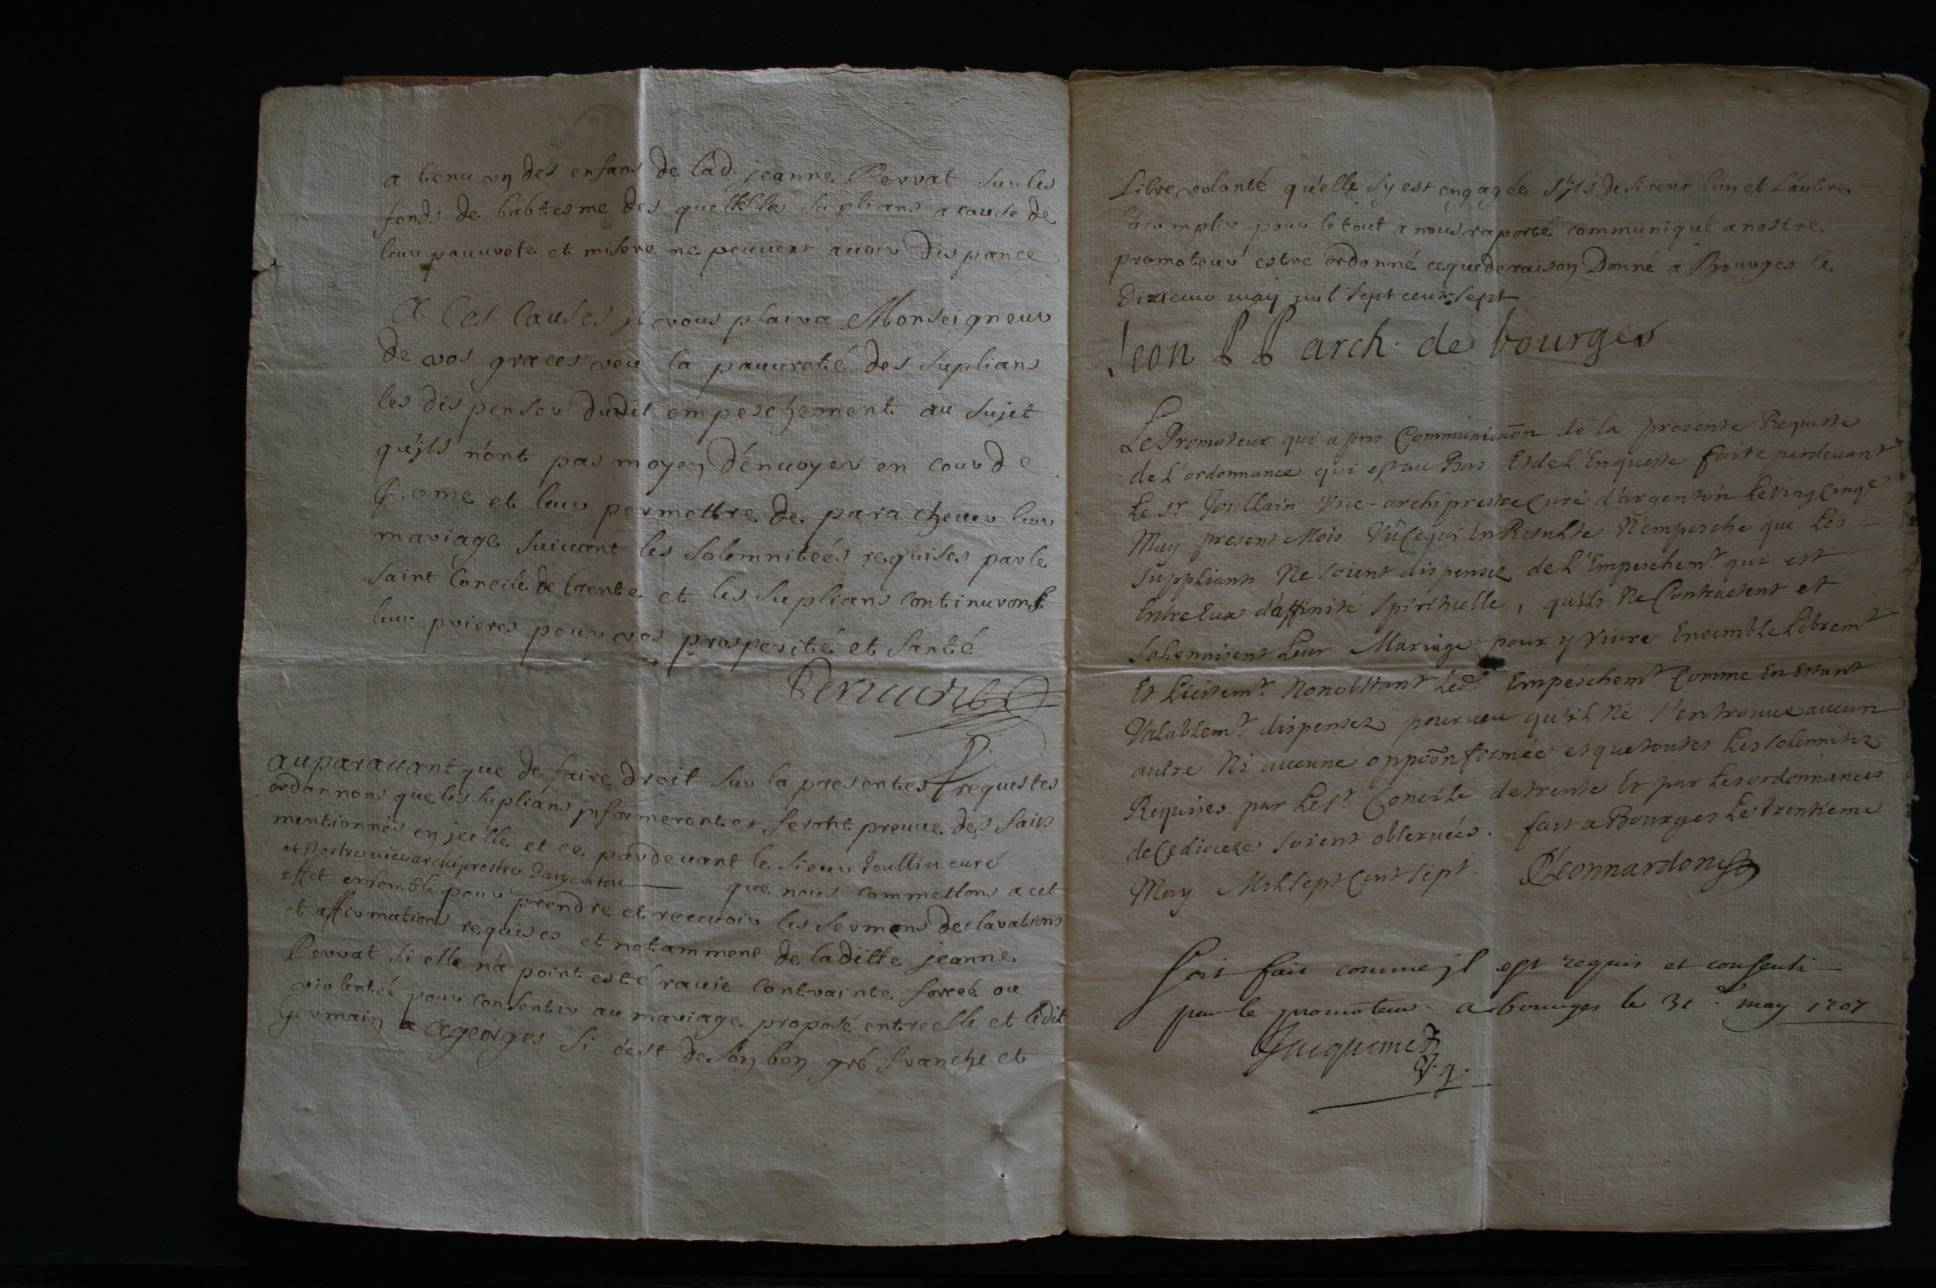 a tenu un des enfans de lad. jeanne Perrat sur les
fonds de babtesme des quelles les suplians a cause de
leur pauvreté et misere ne peuvent avoir dispance
A Ces Causes jl vous plaira Monseigneur
de vos graces veu la pauureté des suplians
les dispenser dudit empeschement au sujet
qu'jls n'ont pas moyen d'enuoyer en cour de
Rome et leur permettre de paracheuer leur
mariage suiuant les solemniteés requises par le
saint Concile de trente et les suplians continuront
leur prieres pour vos prosperité et santé
auparauant que de faire droit sur la presentes requestes
ordonnons que les suplians jnformeront et feront preuue des faits
mentionnés en jcelle et ce pardeuant le sieur Joullin curé
et Nostre vice archiprestre dargenton que nous commettons a cet
effet ensemble pour prendre et receuoir les sermens declarations
et affirmations requises et notamment de laditte jeanne
Perrat si elle n'a point esté rauie contrainte forceé ou
violenteé pour consentir au mariage proposé entre elle et ledit
germain ageorges si c'est de son bon gré franche et
Libre volonté qu'elle sy est engagée s'jls desirent l'un et l'autre
l'acomplir pour le tout a nous raporté communiqué a nostre
promoteur estre ordonné ce que de raison Donné a Bourges le
dixieme may mil sept cens sept
Leon P P arch. de bourges
Le Promoteur qui a pris Communicaõn de la presente Requeste
de L'ordonnance qui est au Bas Et de L'Enqueste faite pardeuant
Le Sr. Joullain Vice-archiprestre Curé d'argenton Le Vingt Cinqe
May present Mois Vû Ce qui En Resulte N'empesche que Les
suppliants Ne soient dispensez de L'Empeschemt. qui est
Entre Eux d'affinité spirituelle, qu'ils Ne Contractent et
solennisent Leur Mariage pour y Viure Ensemble Libremt
Et Licitemt. Nonobstant Led. Empeschemt Comme En Estant
Valablemt. dispensez pourueu qu'il Ne s'en trouue aucun
autre Ni aucune oppoõn formée et que toutes Les solennitez
Requises par Le St. Concile de trente Et par Les ordonnances
de Ce diocese soient obseruées. fait a Bourges Le trentieme
May Mil sept Cent sept. Leonnardon
soit fait comme jl est requis et consenti
par le promoteur. a bourges le 31e may 1707
Jacquemet
V. g.